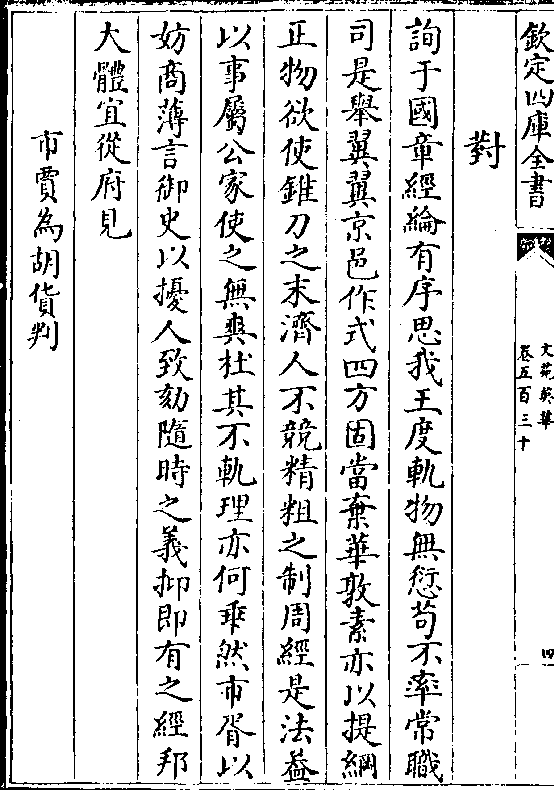 欽定四庫全書
文苑英華
卷五百三十
四
對
詢于國章經綸有序思我王度軌物無愆苟不率常職
司是舉翼翼京邑作式四方固當棄華敦素亦以提綱
正物欲使錐刀之末濟人不競精粗之制周經是法葢
以事屬公家使之無爽杜其不軌理亦何乖然市胥以
妨商薄言御史以擾人致劾隨時之義抑即有之經邦
大體宜從府見
市賈為胡貨判